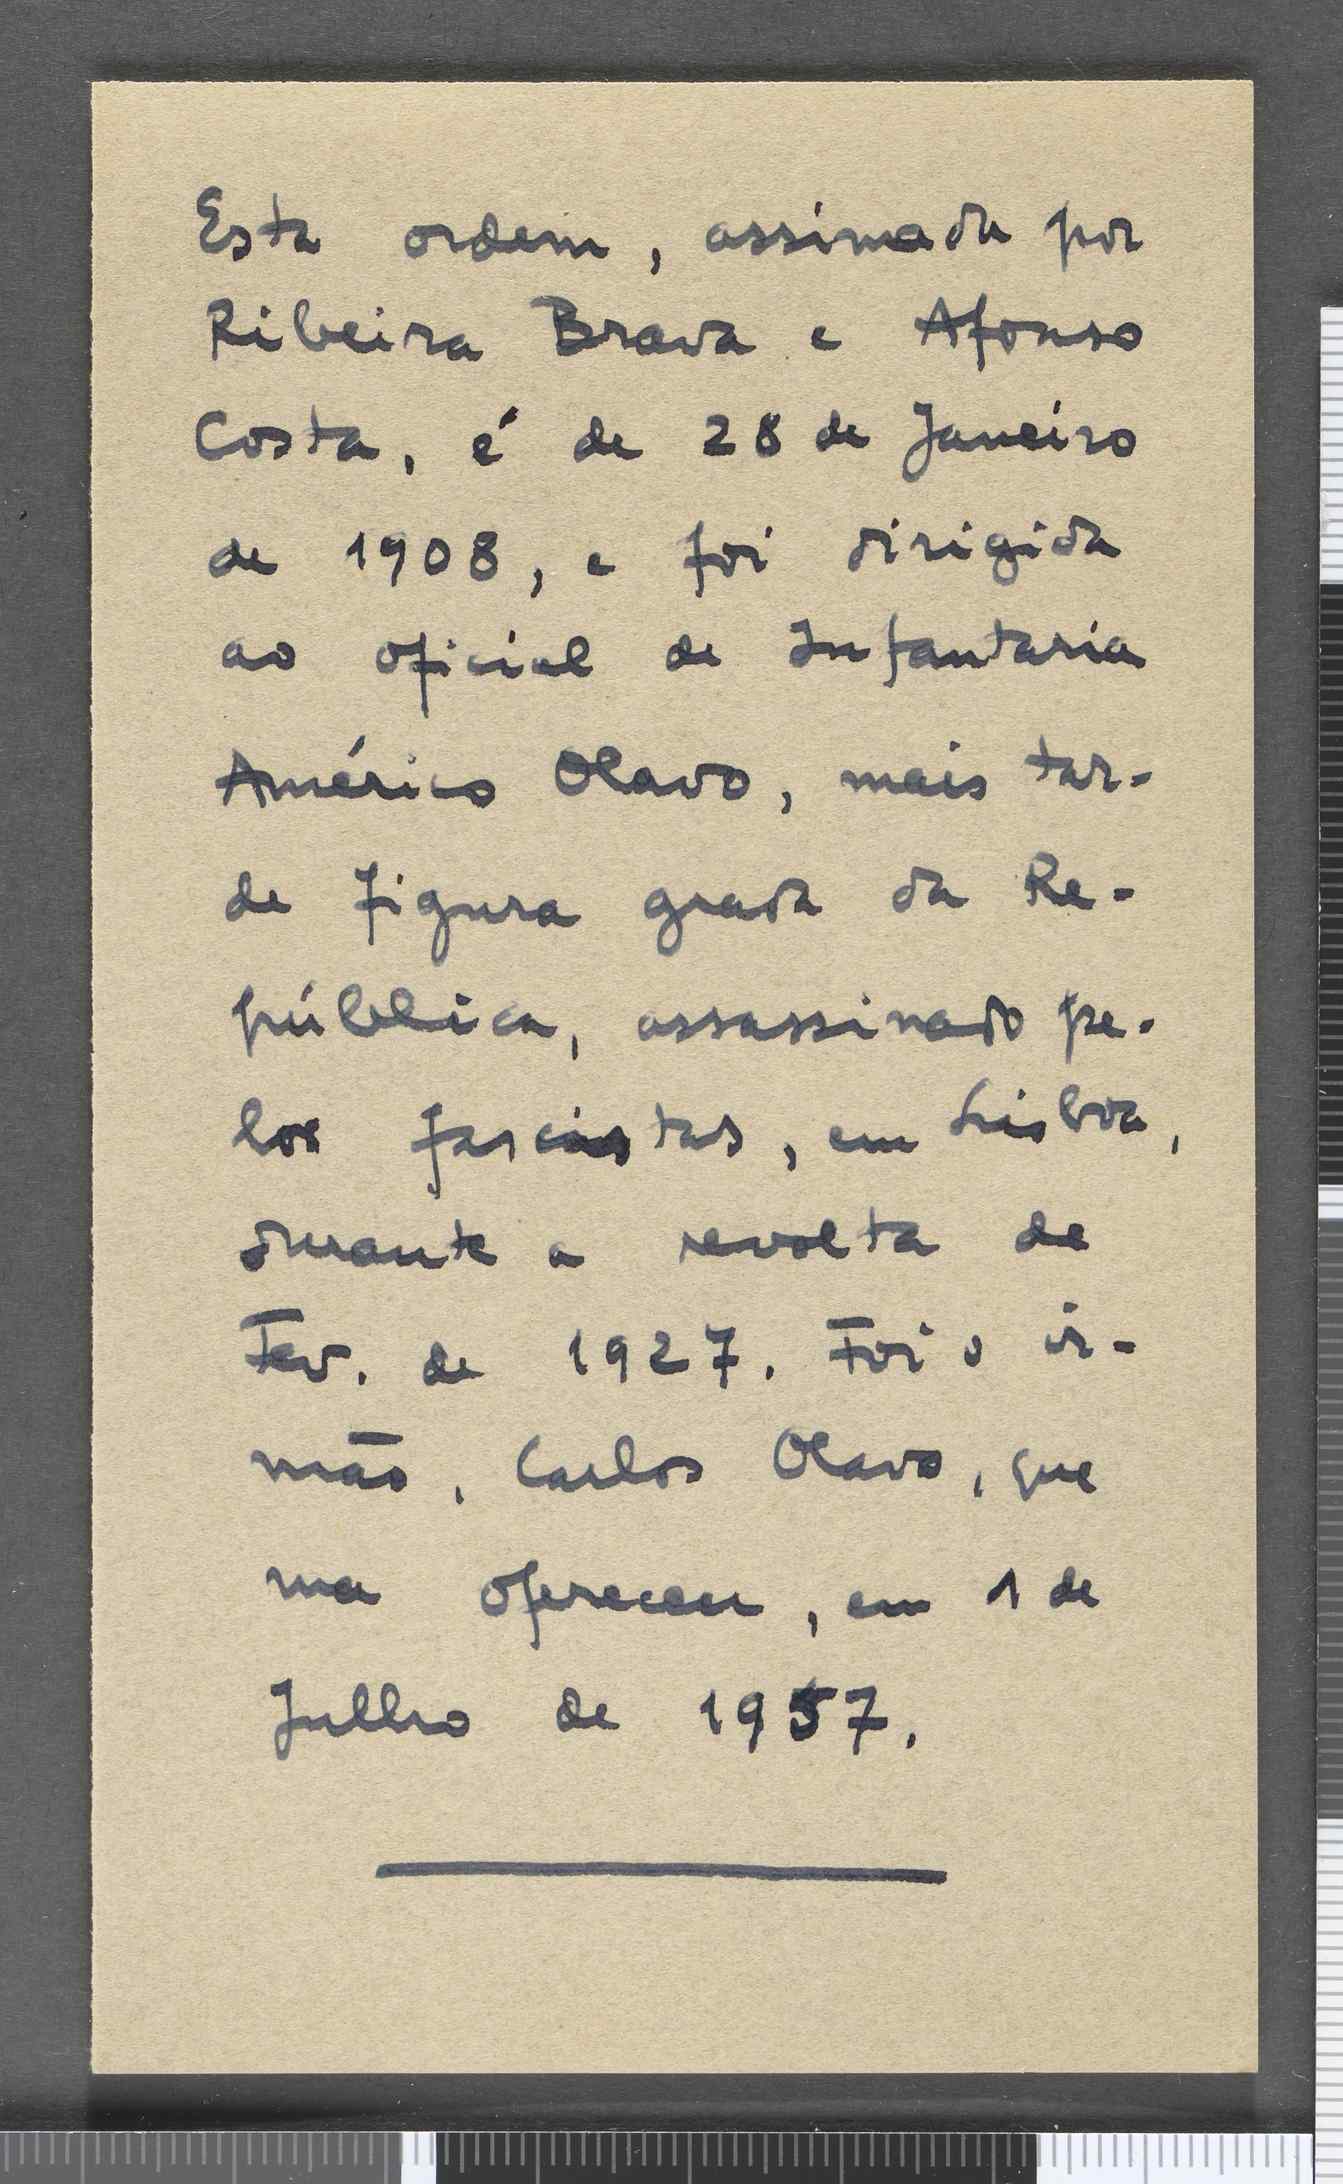 Esta ordem, assinada por
Ribeira Brava e Afonso
Costa, é de 28 de Janeiro
de 1908, e foi dirigida
ao oficial de Infantaria
Américo Olavo, mais tar-
de figura grada da Re-
pública, assassinado pe-
los fascistas, em Lisboa,
durante a revolta de
Fev. de 1927. Foi o ir-
mão, Carlos Olavo, que
ma ofereceu, em 1 de
Julho de 1957.